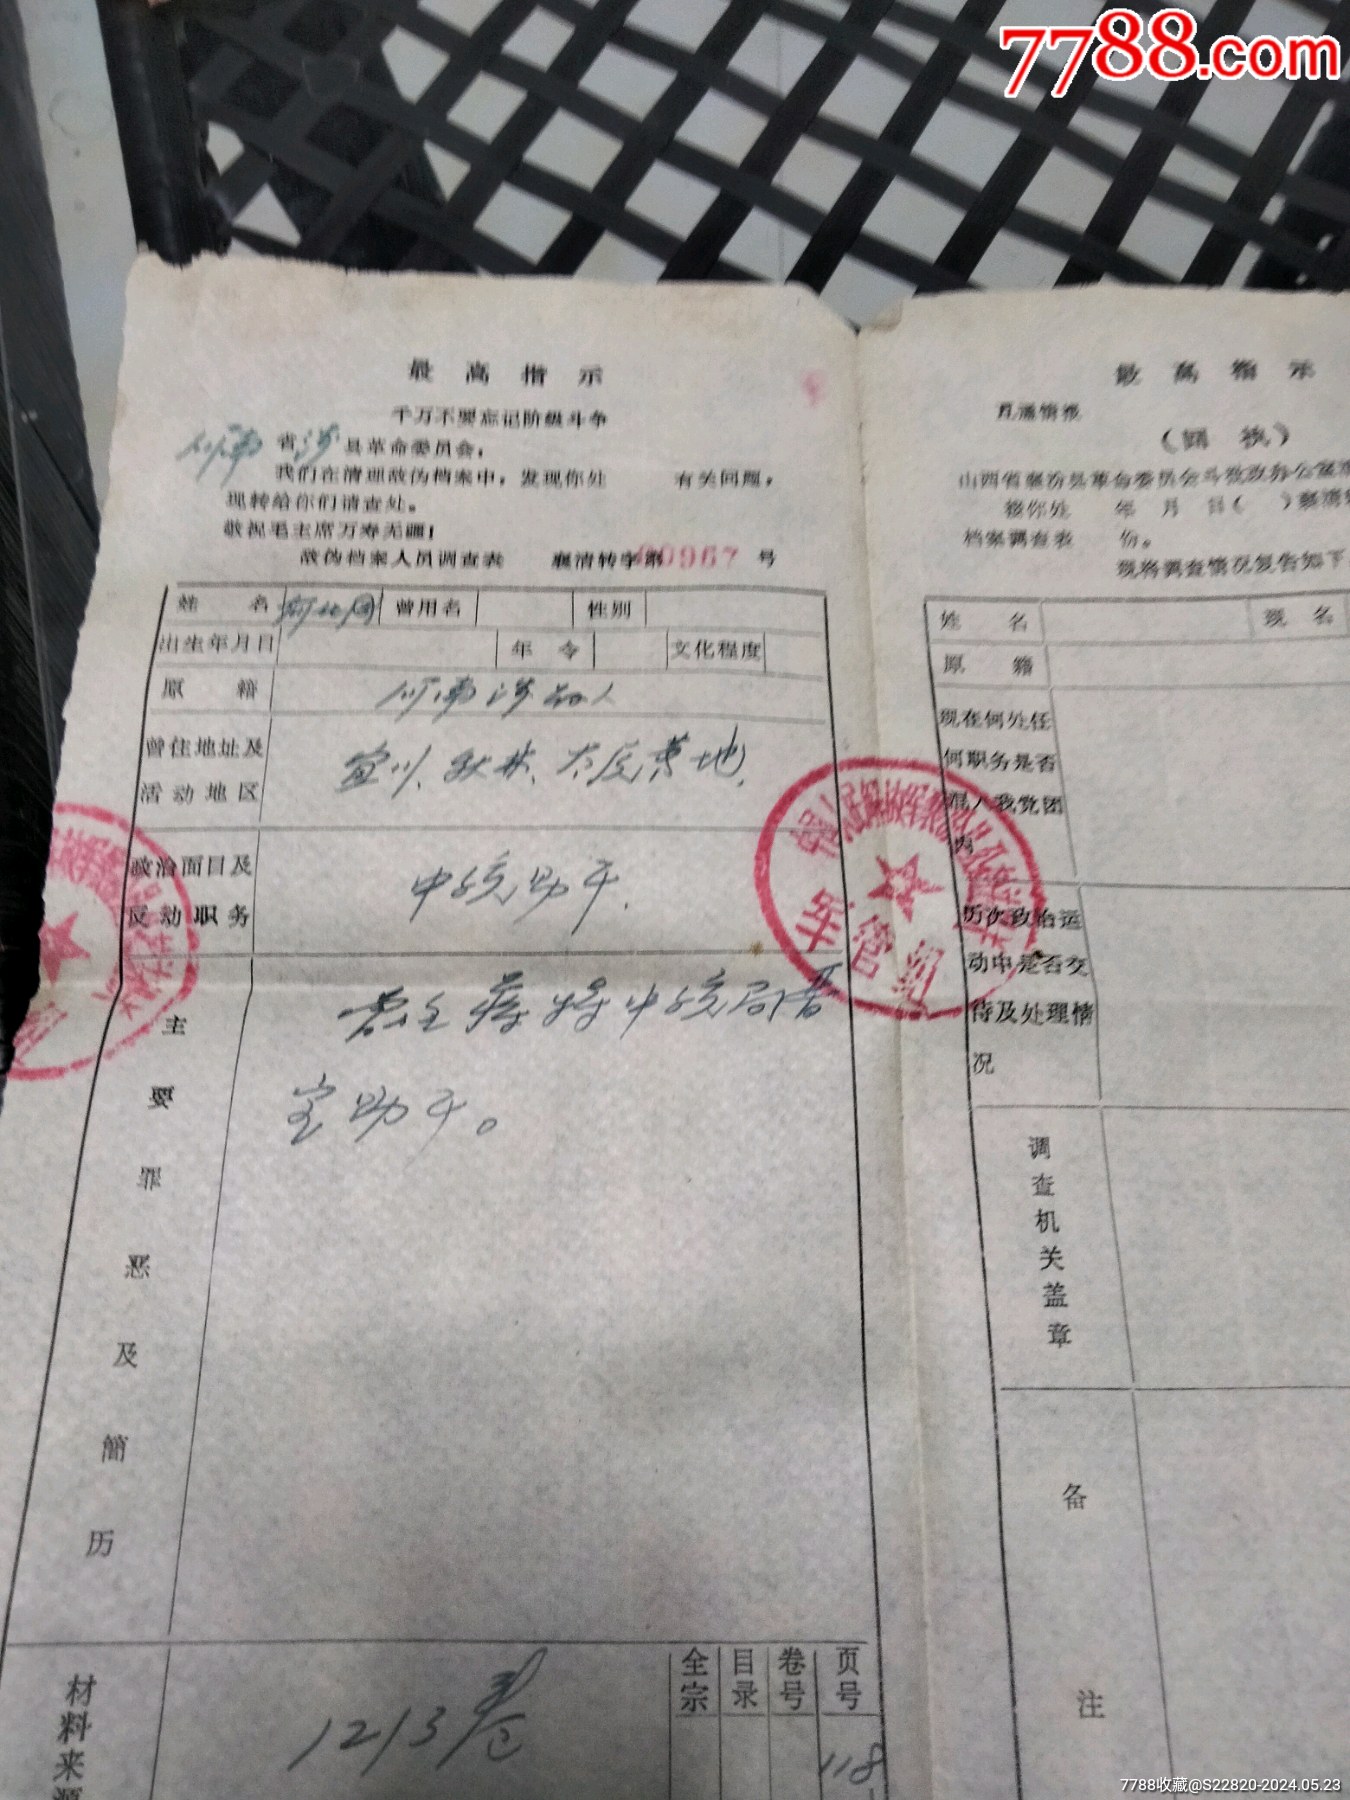 7788.com
最高指示
千万不要忘记阶级斗争
河南省涉县革命委员会：
我们在清理敌伪档案中，发现你处 有关问题，
现转给你们请查处。
敬祝毛主席万寿无疆！
敌伪档案人员调查表 襄清转字第00967号
姓名 曾用名 性别
出生年月日 年令 文化程度
原籍 河南涉县人
曾住地址及活动地区 宜川、秋林、太原等地、
政治面目及反动职务 中统助干.
主要罪恶及简历 蒋特中统局晋
室助干。
材料来源 1213卷 全宗 目录 卷号 页号 118
军管组
最高指示
互通情报
（回执）
山西省襄汾县革命委员会斗批改办公室
接你处 年 月 日（ ）襄清
档案调查表 份。
现将调查情况复告如下
姓名 现名
原籍
现在何处任
何职务是否
混入我党团
内
历次政治运
动中是否交
待及处理情
况
调查机关盖章
备注
7788收藏@S22820-2024.05.23